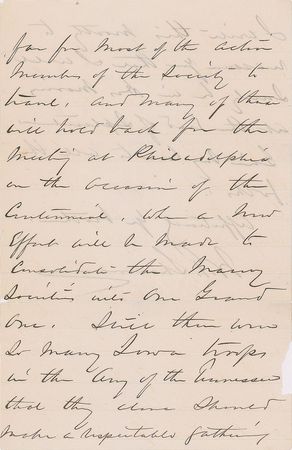 far for most of the active
Members of the Society to
travel, and many of them
will hold back for the
Meeting at Philadelphia
on the occasion of the
Centennial, when a new
Effort will be made to
Consolidate the Many
Societies into One Grand
One. Still there were
So many Iowa troops
in the Army of the Tennessee
that they alone should
make a respectable gathering